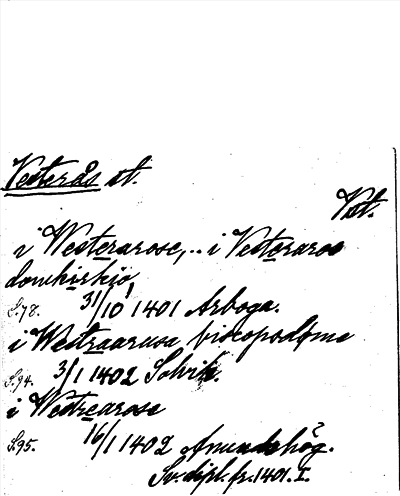 Vesterås st.
Vst.
i Westerarose, .. i Vesteraros
domkirkio
S. 78. 31/10 1401 Arboga.
i Westraarusa biscopsdøme
S. 94. 3/1 1402
i Westrearose
S. 95. 16/1 1402 Anundshög.
Sv. dipl. fr. 1401. I.